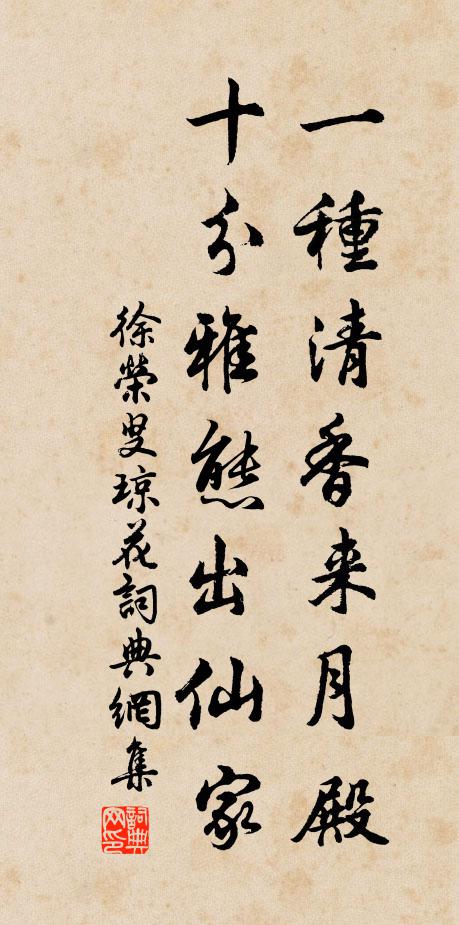 一種清香來月殿
十分雅態出仙家
徐榮叟琼花詞典網集
詞典
网印